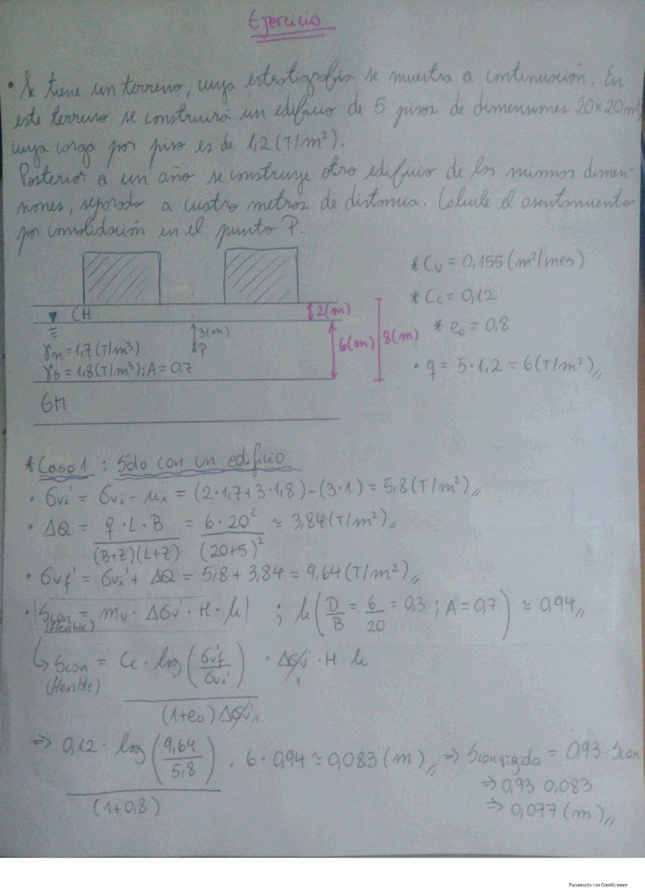 Ejercicio
• Se tiene un terreno, cuya estratigrafía se muestra a continuación. En
este terreno se construirá un edificio de 5 pisos de dimensiones 20×20 m²,
cuya carga por piso es de 1,2 (T/m²).
Posterior a un año se construye otro edificio de las mismas dimen-
siones, separado a cuatro metros de distancia. Calcule el asentamiento
por consolidación en el punto P.
* Cv = 0,155 (m²/mes)
* Cc = 0,12
* e₀ = 0,8
• q = 5·1,2 = 6 (T/m²)
CH
2(m)
3(m)
P
6(m)
8(m)
γn = 1,7 (T/m³)
γb = 1,8 (T/m³); A = 0,7
GM
* Caso 1: Sólo con un edificio
• σvi' = σvi - μi = (2·1,7+3·1,8)-(3·1) = 5,8 (T/m²)
• ΔQ = q·L·B / (B+Z)(L+Z) = 6·20² / (20+5)² ≃ 3,84 (T/m²)
• σvf' = σvi' + ΔQ = 5,8 + 3,84 = 9,64 (T/m²)
• Scon (flexible) = mv · Δσv' · H · μ ; μ (D/B = 6/20 = 0,3 ; A = 0,7) ≃ 0,94
↳ Scon (flexible) = Cc · log (σvf'/σvi') / (1+e₀) Δσv' · Δσv' · H · μ
1
⇒ 0,12 · log (9,64/5,8) / (1+0,8) · 6 · 0,94 ≃ 0,083 (m) ⇒ Scon rígido = 0,93 · Scon
⇒ 0,93 · 0,083
⇒ 0,077 (m)